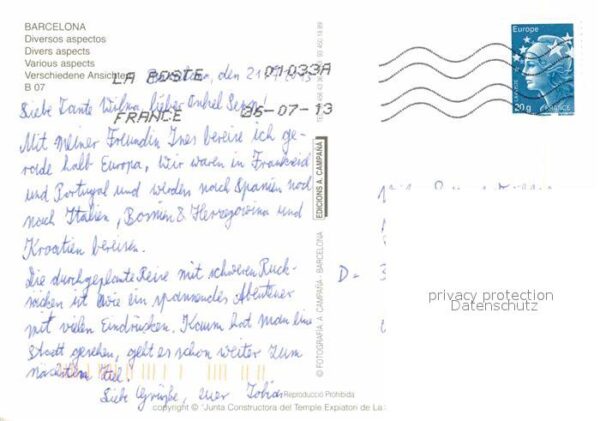 BARCELONA
Diversos aspectos
Divers aspects
Various aspects
Verschiedene Ansichten
B 07
LA POSTE 01033A
FRANCE 26-07-13
Europe
FRANCE
20g
Barcelona, den 21.07.2013
Liebe Tante Wilma, lieber Onkel Sepp!
Mit meiner Freundin Ines bereise ich ge-
rade halb Europa, Wir waren in Frankreich
und Portugal und werden nach Spanien noch
nach Italien, Bosnien & Herzegowina und
Kroatien bereisen.
Die durchgeplante Reise mit schweren Ruck-
säcken ist wie ein spannendes Abenteuer
mit vielen Eindrücken. Kaum hat man eine
Stadt gesehen, geht es schon weiter zum
nächsten Ziel!
Liebe Grüße, euer Tobias
EDICIONS A. CAMPAÑÁ
© FOTOGRAFIA: A. CAMPAÑÁ - BARCELONA
D-
privacy protection
Datenschutz
Reproducció Prohibida
copyright © "Junta Constructora del Temple Expiatori de La